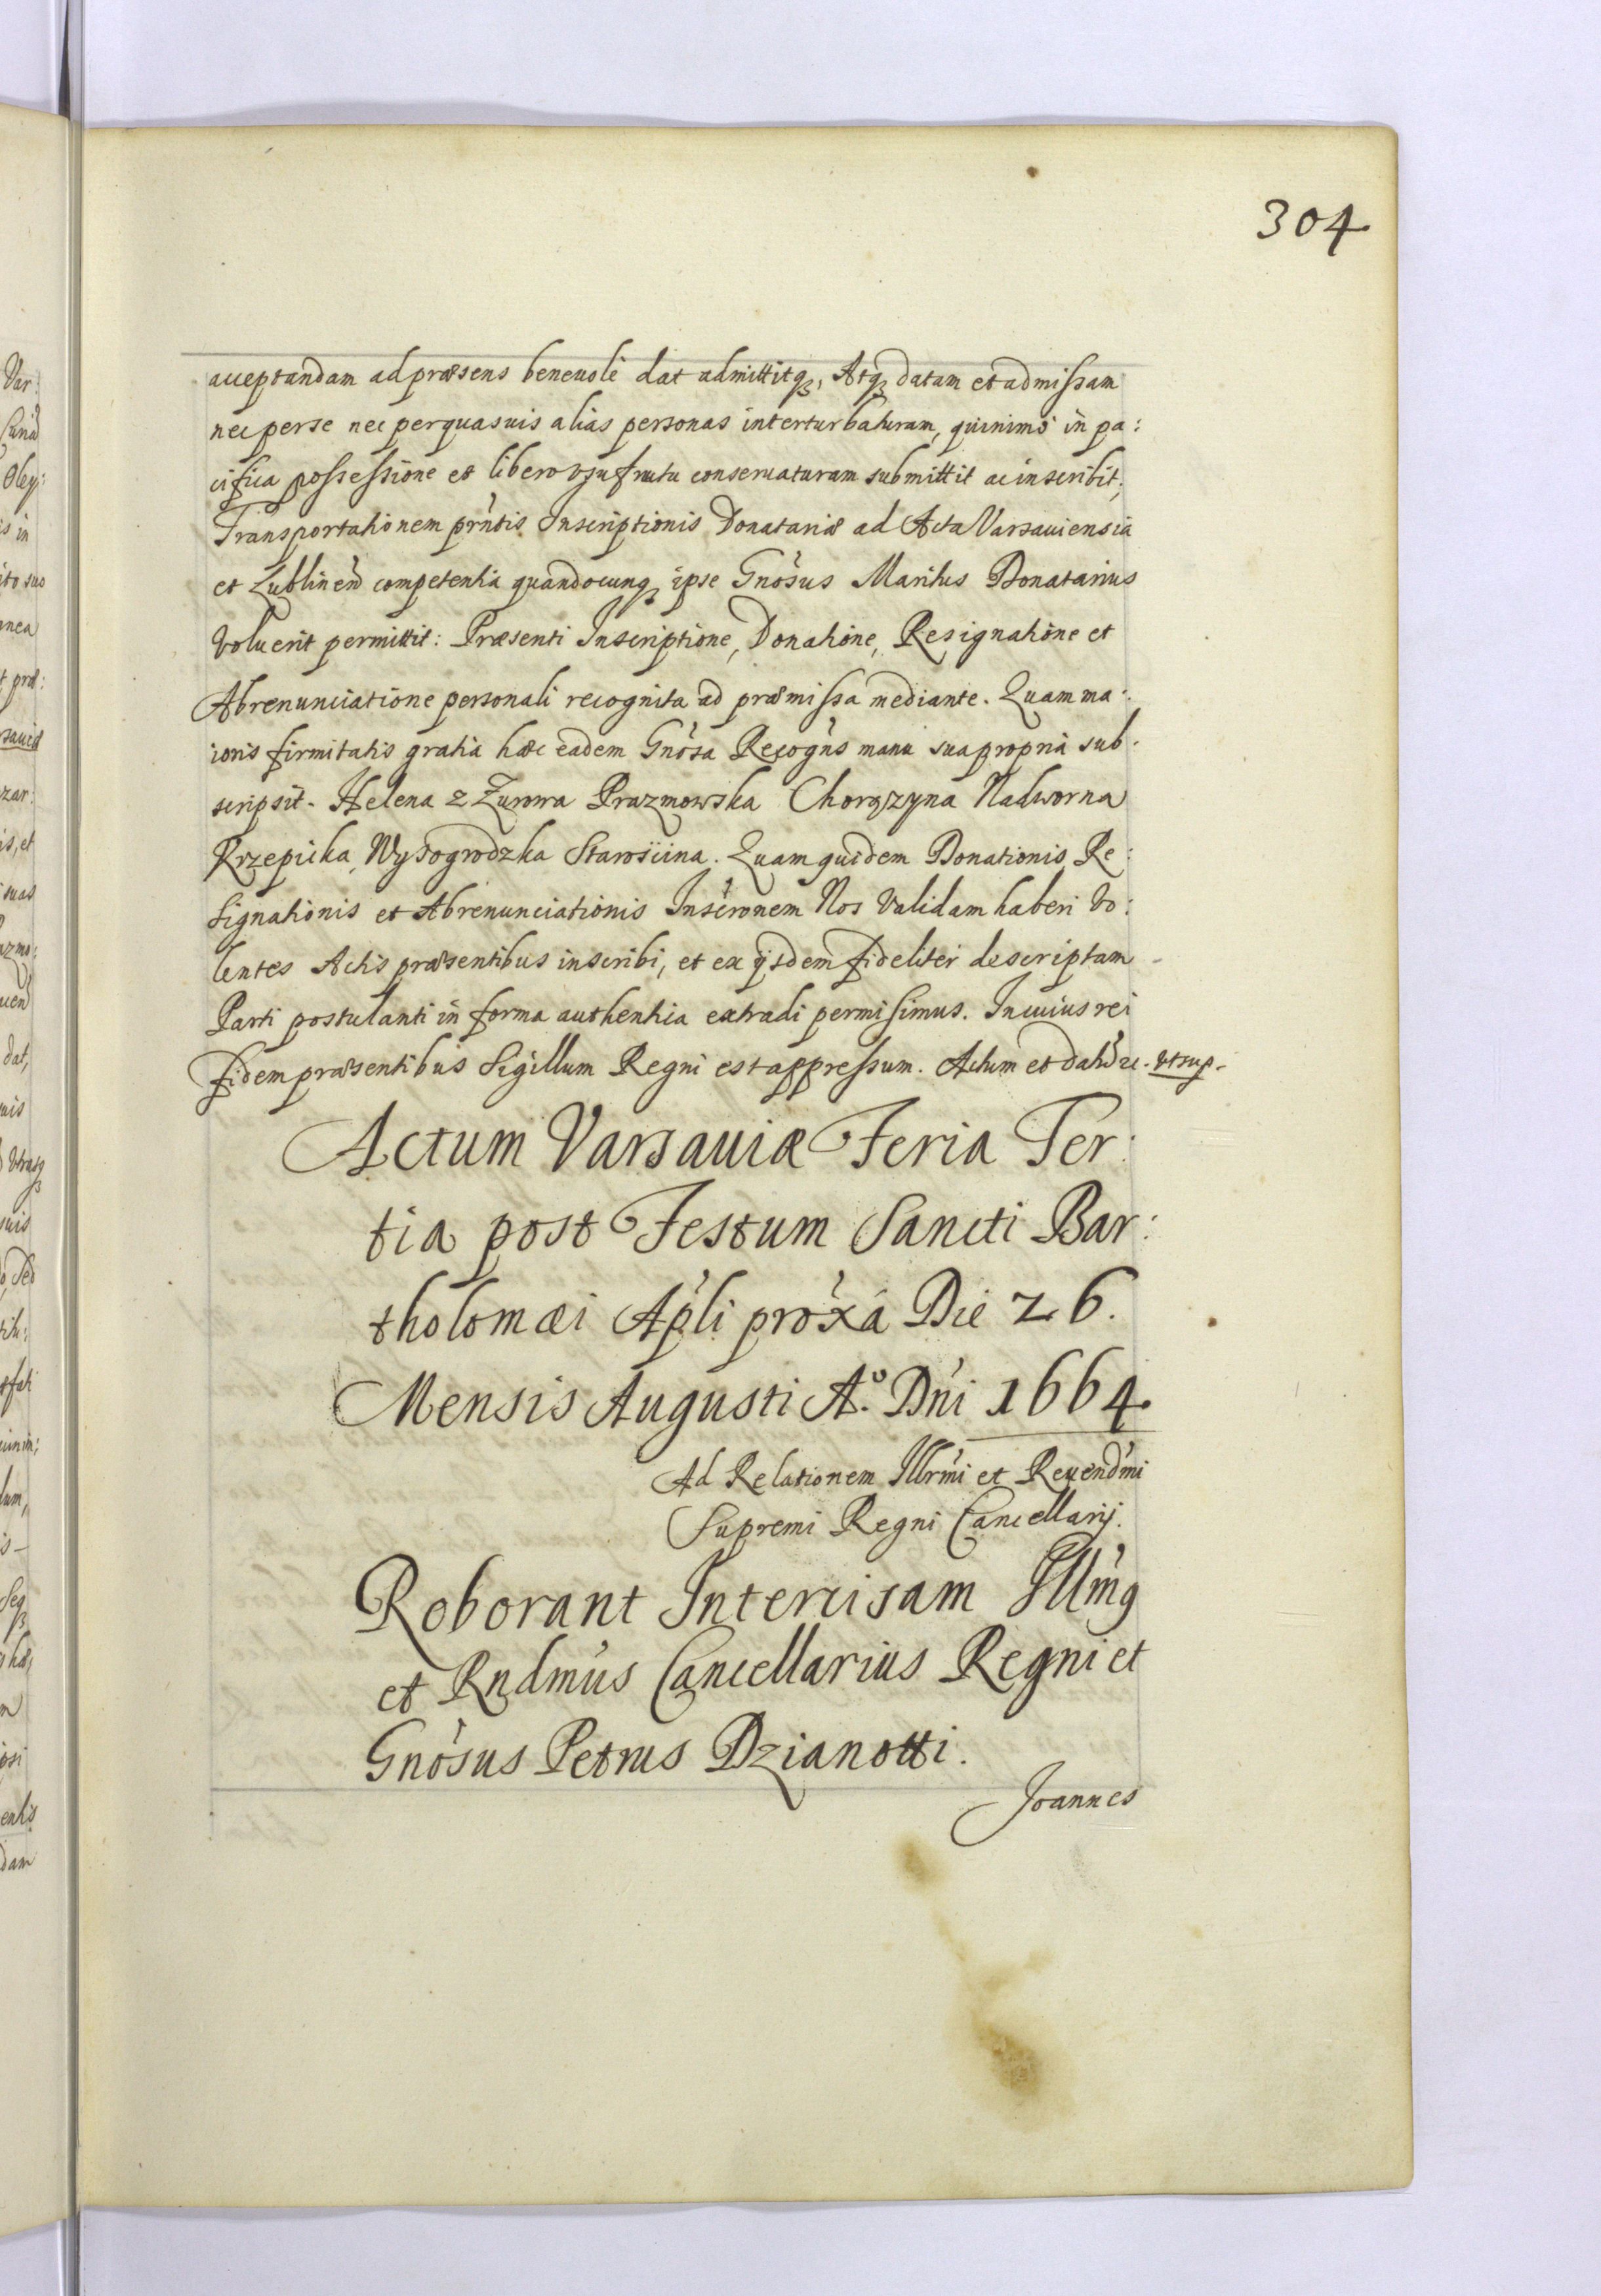 304
acceptandam ad præsens beneuolè dat admittitq3, Atq3 datam et admissam
nec per se nec per quasuis alias personas interturbaturam, quinimò in pa:
cifica possessione et libero vsufructu conseruaturam submittit ac inscribit,
Transportationem prńtis Inscriptionis Donatariæ ad Acta Varsauiensia
et Lublineń competentia quandocunq3 ipse Gnósus Maritus Donatarius
voluerit permittit: Præsenti Inscriptione, Donatione, Resignatione et
Abrenunciatione personali recognita ad præmissa mediante. Quam ma:
ioris firmitatis gratia hæc eadem Gnósa Recogńs manu sua propria sub:
scripsit. Helena z Zurowa Prazmowska Chorązyna Nadworna
Krzepicka, Wysogrodzka Starościna. Quam quidem Donationis Re:
signationis et Abrenunciationis Inscŕonem Nos validam haberi vo:
lentes Actis præsentibus inscribi, et ex ijsdem fideliter descriptam
Parti postulanti in forma authentica extradi permisimus. In cuius rei
fidem præsentibus Sigillum Regni est appressum. Actum et datú ec. vt sup.
Actum Varsauiæ Feria Ter:
tia post Festum Sancti Bar:
tholomæi Aṕli próxa Die 26.
Mensis Augusti Aº. Dńi 1664.
Ad Relationem Illrḿi et Reuendḿi
Supremi Regni Cancellarij.
Roborant Intercisam Illḿ9
et Rndḿus Cancellarius Regni et
Gnósus Petrus Dzianotti.
Joannes